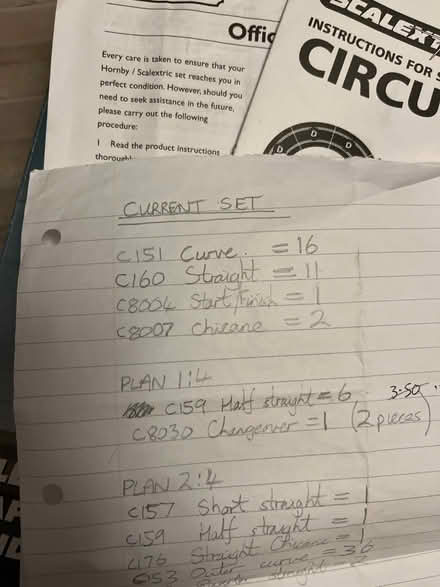 Offic
Every care is taken to ensure that your
Hornby / Scalextric set reaches you in
perfect condition. However, should you
need to seek assistance in the future,
please carry out the following
procedure:
1 Read the product instructions
SCALEXT
INSTRUCTIONS FOR S
CIRCU
D
D
D
CURRENT SET
C151 Curve. = 16
C160 Straight = 11
C8004 Start/Finish = 1
C8007 Chicane = 2
PLAN 1:4
C159 Half straight = 6 3-50
C8030 Changeover = 1 (2 pieces)
PLAN 2:4
C157 Short straight = 1
C159 Half straight = 1
C176 Straight Chicane = 1
C153 Outer curve = 36
straight